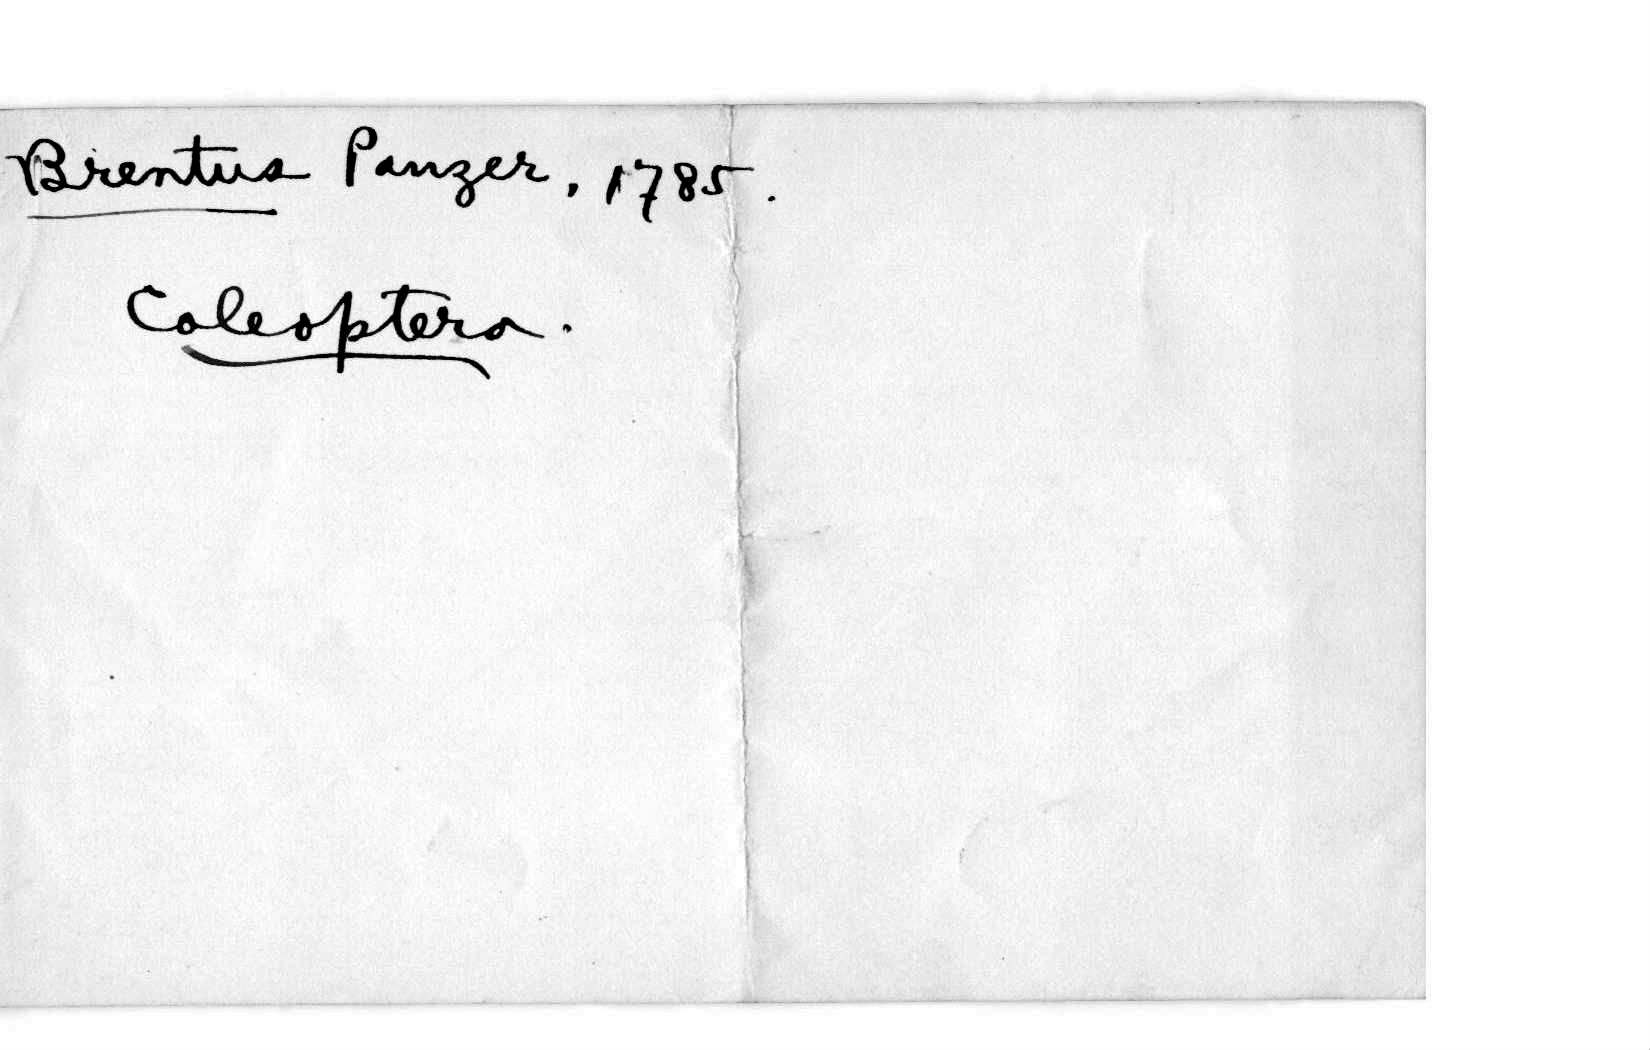 Brentus Panzer, 1785.
Coleoptera.